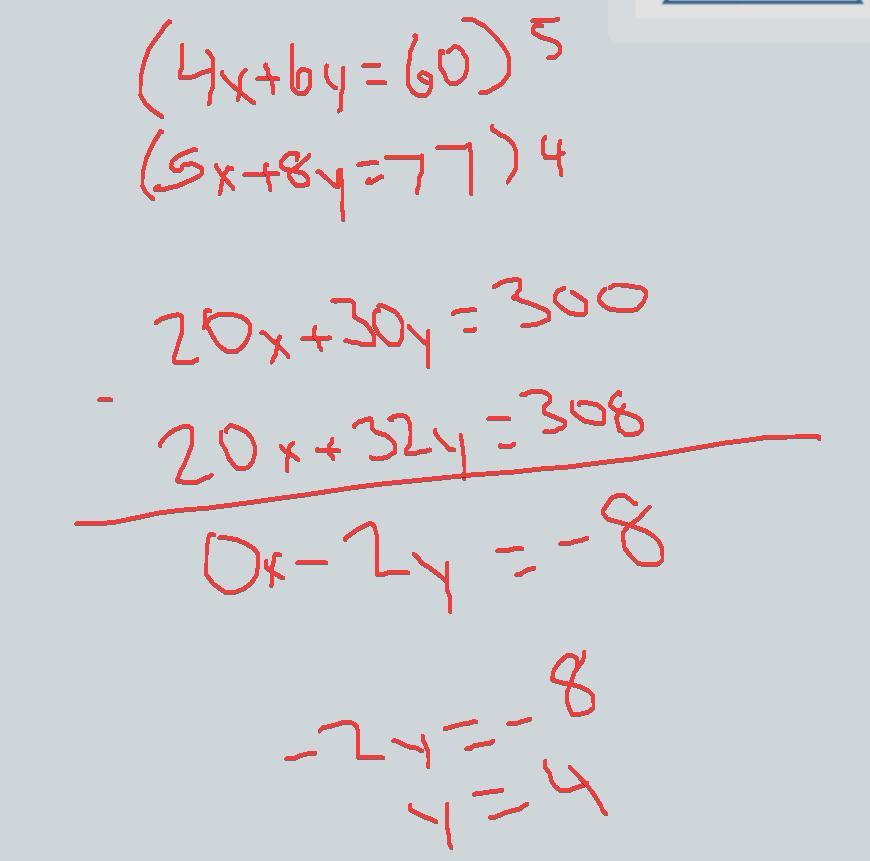 (4x+6y=60)5
(5x+8y=77)4
20x+30y=300
-
20x+32y=308
0x-2y=-8
-2y=-8
y=4